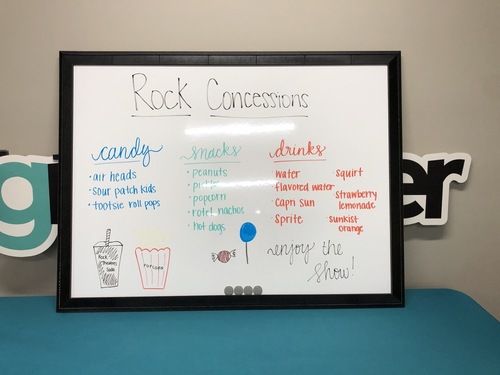 Rock Concessions
candy
• air heads
• sour patch kids
• tootsie roll pops
snacks
• peanuts
• pickles
• popcorn
• rotel nachos
• hot dogs
drinks
water
flavored water
Capri Sun
Sprite
• squirt
• strawberry
lemonade
• sunkist
orange
Rock
Theatres
Soda
POPCORN
enjoy the
show!
g
er